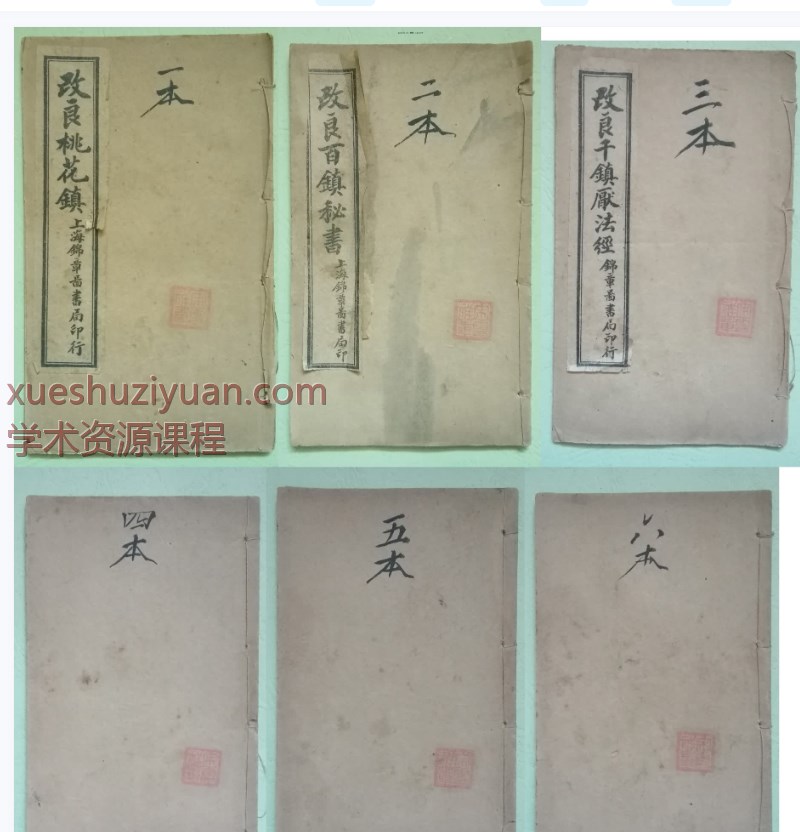 一本
改良桃花鎮
上海錦章啚書局印行
二本
改良百鎮秘書
上海錦章啚書局印
三本
改良千鎮厭法經
錦章啚書局印行
xueshuziyuan.com
学术资源课程
四本
五本
六本